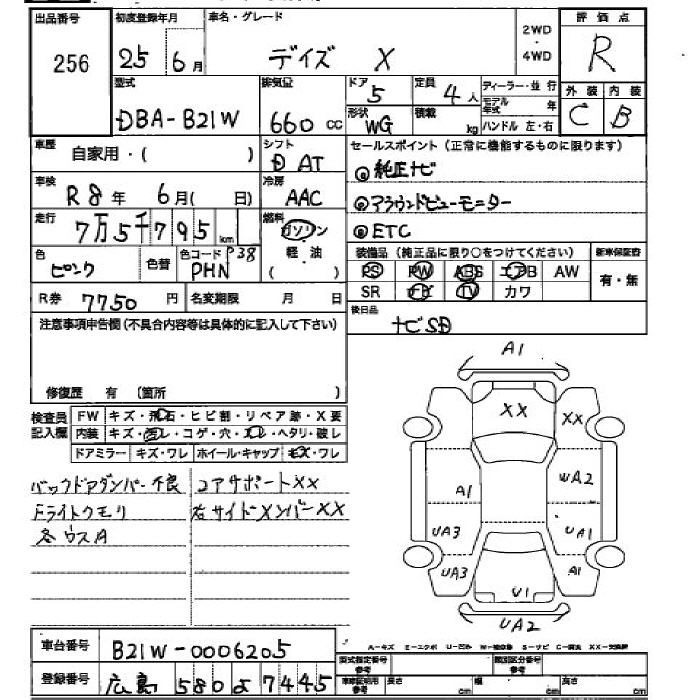 出品番号 初度登録年月 車名・グレード 2WD 評価点
256 25 6月 デイズ X ・ R
4WD
型式 排気量 ドア 定員 ディーラー・並行 外装 内装
DBA-B21W 660 cc 5 4人 モデル年式 年 C B
形状 積載
WG kg ハンドル 左・右
車歴 自家用・( ) シフト セールスポイント(正常に機能するものに限ります)
D AT ◎純正ナビ
車検 R8年 6月( 日) 冷房 AAC ◎アラウンドビューモニター
走行 7万5千795km 燃料 ガソリン ◎ETC
軽・油
( )
色 ピンク 色替 色コード P38 PHN 装備品(純正品に限り○をつけてください) 新車保証書
PS PW ABS エアB AW 有・無
R券 7750円 名変期限 月 日 SR ナビ TV カワ
注意事項申告欄(不具合内容等は具体的に記入して下さい) 後日品 ナビSD
修復歴 有 (箇所 )
検査員 FW キズ・飛石・ヒビ割・リペア跡・X要
記入欄 内装 キズ・汚レ・コゲ・穴・スレ・ヘタリ・破レ
ドアミラー キズ・ワレ ホイール・キャップ キズ・ワレ
バックドアダンパー不良 コアサポートXX
Fライトクモリ 右サイドメンバーXX
各ウスA
A1
XX XX
A1 WA2
UA3 UA1
UA3 A1
U1
UA2
A-キズ E-エクボ U-凹み W-補修跡 S-サビ C-腐食 XX-交換歴
車台番号 B21W-0006205
型式指定番号 類別区分番号
参考 参考
登録番号 広島 580 よ 7445
車庫証明用 長さ 幅 高さ
参考 cm cm cm